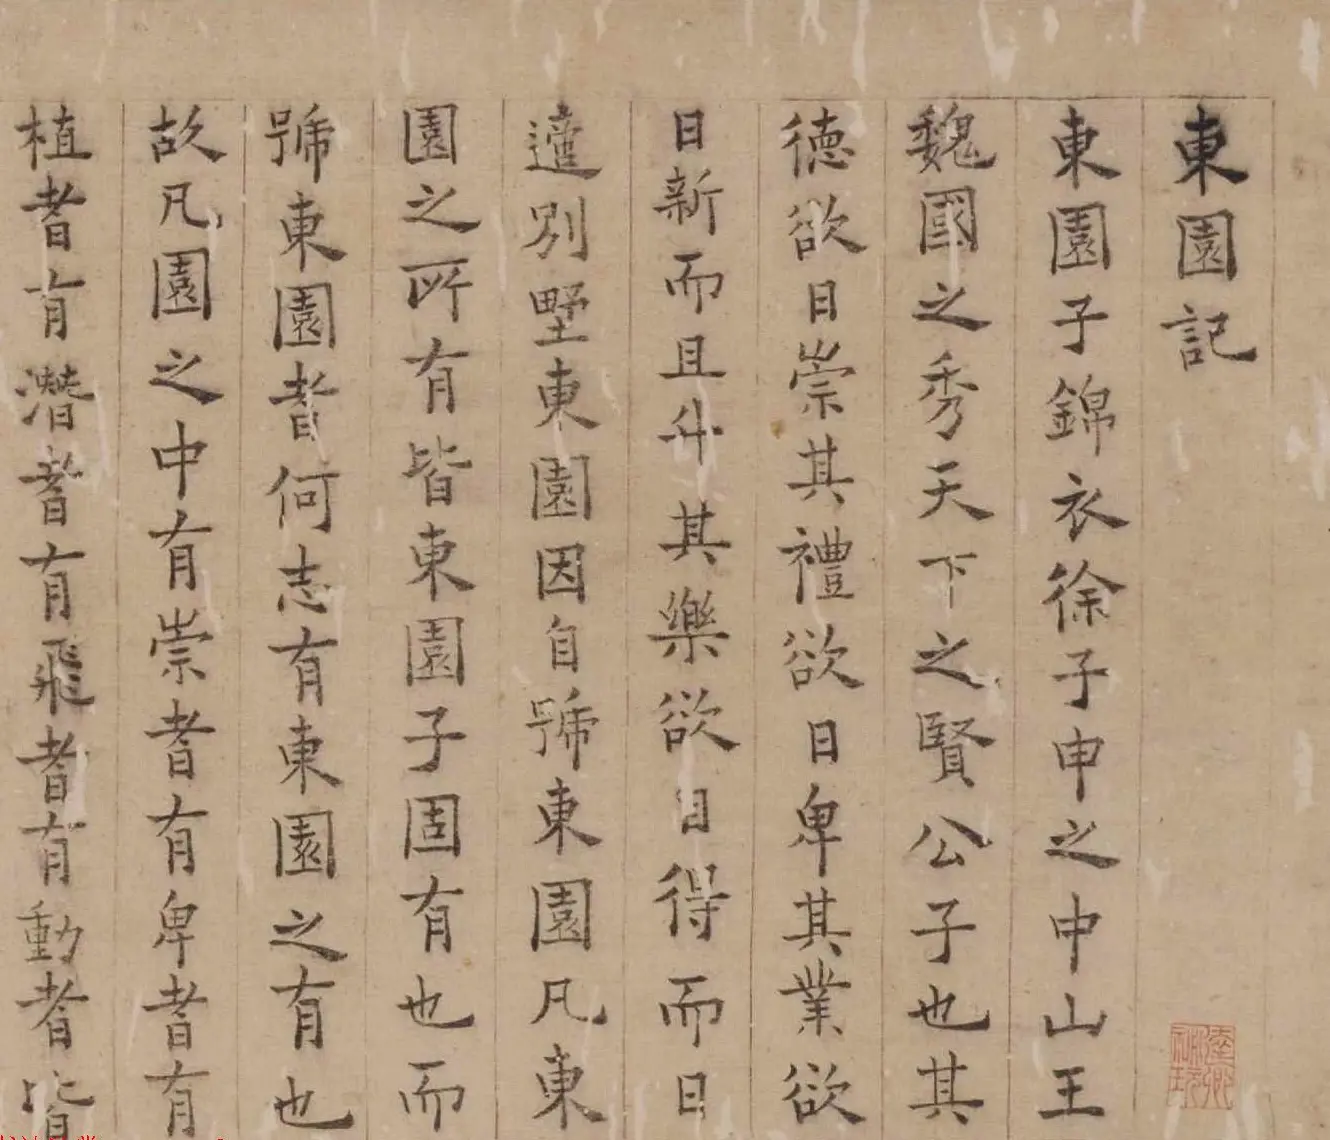 東園記
東園子錦衣徐子申之中山王
魏國之秀天下之賢公子也其
德欲日崇其禮欲日卑其業欲
日新而且升其樂欲日得而日
別墅東園因自號東園凡東
園之所有皆東園子固有也而
號東園者何志有東園之有也
故凡園之中有崇者有卑者有
植者有潛者有飛者有動者皆